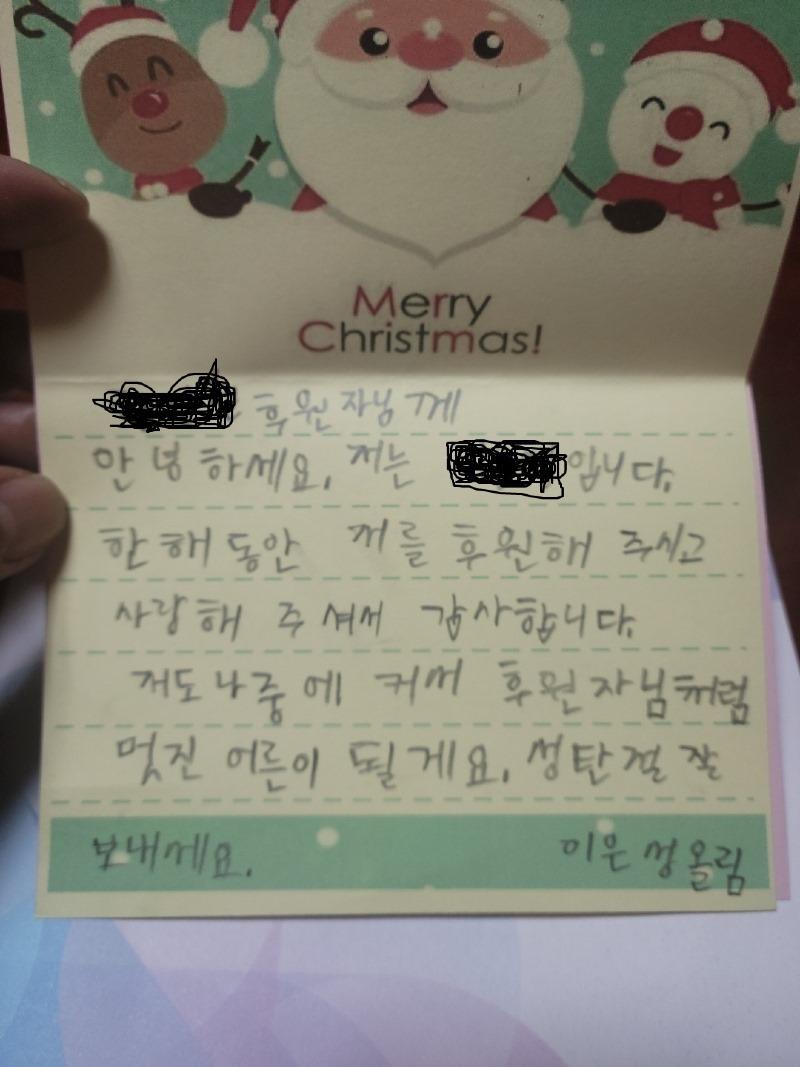 Merry
Christmas!
후원자님께
안녕하세요, 저는 입니다.
한해동안 저를 후원해 주시고
사랑해 주셔서 감사합니다.
저도 나중에 커서 후원자님처럼
멋진 어른이 될게요. 성탄절 잘
보내세요. 이은성올림